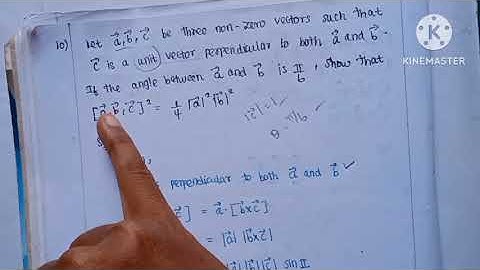 10) Let a⃗, b⃗, c⃗ be three non-zero vectors such that
c⃗ is a unit vector perpendicular to both a⃗ and b⃗.
If the angle between a⃗ and b⃗ is π/6, show that
[a⃗, b⃗, c⃗]² = 1/4 |a⃗|² |b⃗|²
|c⃗| = 1 ✓
θ = π/6
perpendicular to both a⃗ and b⃗ ✓
c⃗] = a⃗ · [b⃗ x c⃗]
= |a⃗| |b⃗ x c⃗|
|a⃗| |b⃗| |c⃗| sin π
KINEMASTER